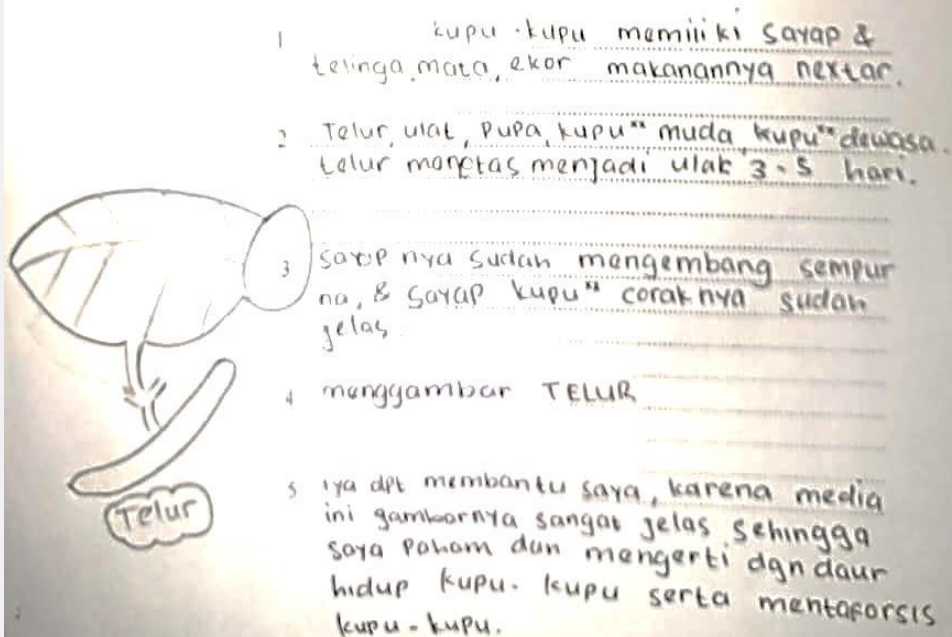 1 kupu-kupu memiliki sayap &
telinga, mata, ekor makanannya nextar.
2 Telur, ulat, pupa, kupu" muda, kupu" dewasa.
telur menetas menjadi ulat 3-5 hari.
3 sayap nya sudah mengembang sempur
na, & sayap kupu" corak nya sudah
jelas
4 menggambar TELUR
5 iya dpt membantu saya, karena media
ini gambarnya sangat jelas sehingga
saya paham dan mengerti dgn daur
hidup kupu-kupu serta mentaforsis
kupu-kupu.
Telur